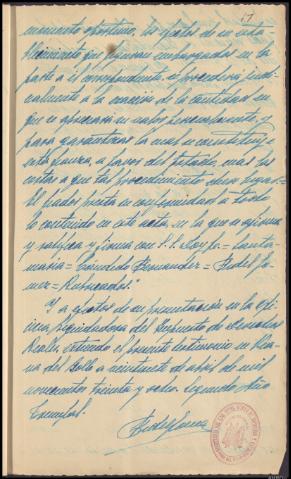 momento oportuno, los efectos de su esta-
blecimiento que figuran embargados en la
parte a él correspondiente, se procederá judi-
cialmente a la exacción de la cantidad en
que se apreciaron en valor
para garantizar la cual se constituye
esta fianza, a favor del Estado, más las
costas a que tal procedimiento diese lugar.=
El fiador presta su conformidad a todo
lo contenido en este acta, en la que se afirma
y ratifica y firma con S.S. Doy fe.=
= Fernandez = Fidel Go-
mez = Rubricados."
Y a efectos de su presentación en la Ofi-
cina liquidadora del Impuesto de Derechos
Reales, extiendo el presente testimonio en
a veintisiete de abril de mil
novecientos treinta y ocho. Segundo Año
Triunfal.
Fidel Gomez